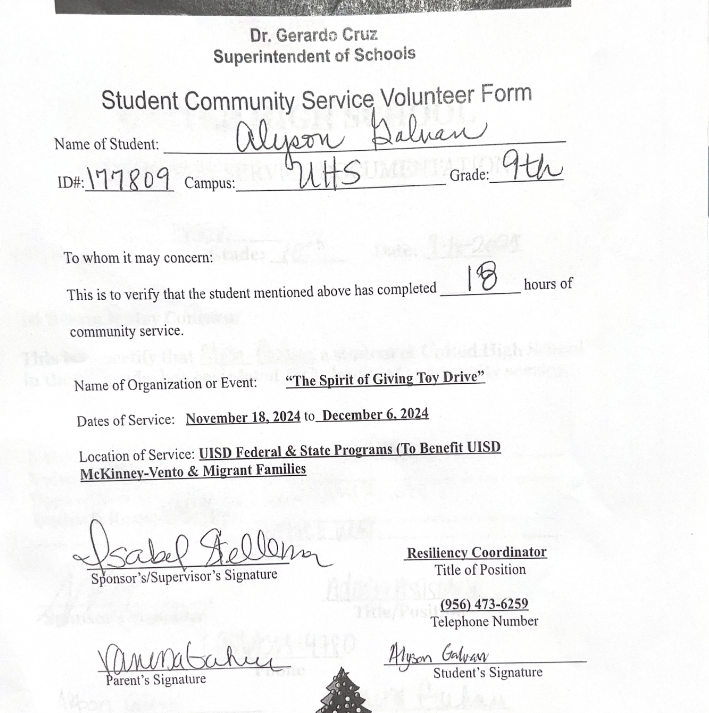 Dr. Gerardo Cruz
Superintendent of Schools
Student Community Service Volunteer Form
Name of Student: Alyson Galvan
ID#: 177809 Campus: UHS Grade: 9th
To whom it may concern:
This is to verify that the student mentioned above has completed 18 hours of
community service.
Name of Organization or Event: “The Spirit of Giving Toy Drive”
Dates of Service: November 18, 2024 to December 6, 2024
Location of Service: UISD Federal & State Programs (To Benefit UISD
McKinney-Vento & Migrant Families
Isabel
Sponsor's/Supervisor's Signature
Resiliency Coordinator
Title of Position
(956) 473-6259
Telephone Number
Parent's Signature
Alyson Galvan
Student's Signature